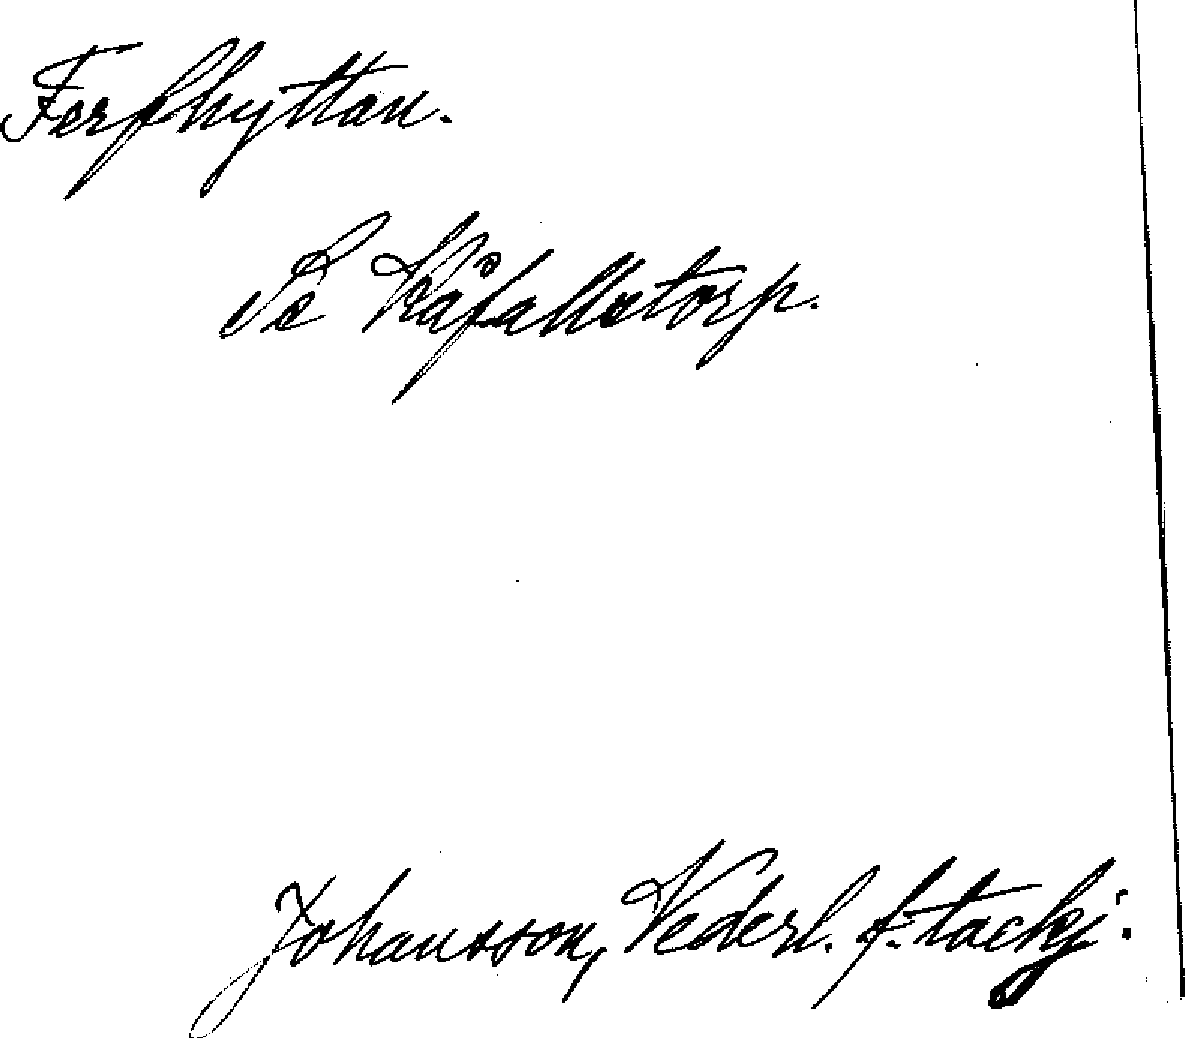 Ferfhyttan.
Se Håfallstorp.
Johansson, Vederl. f. tackj.